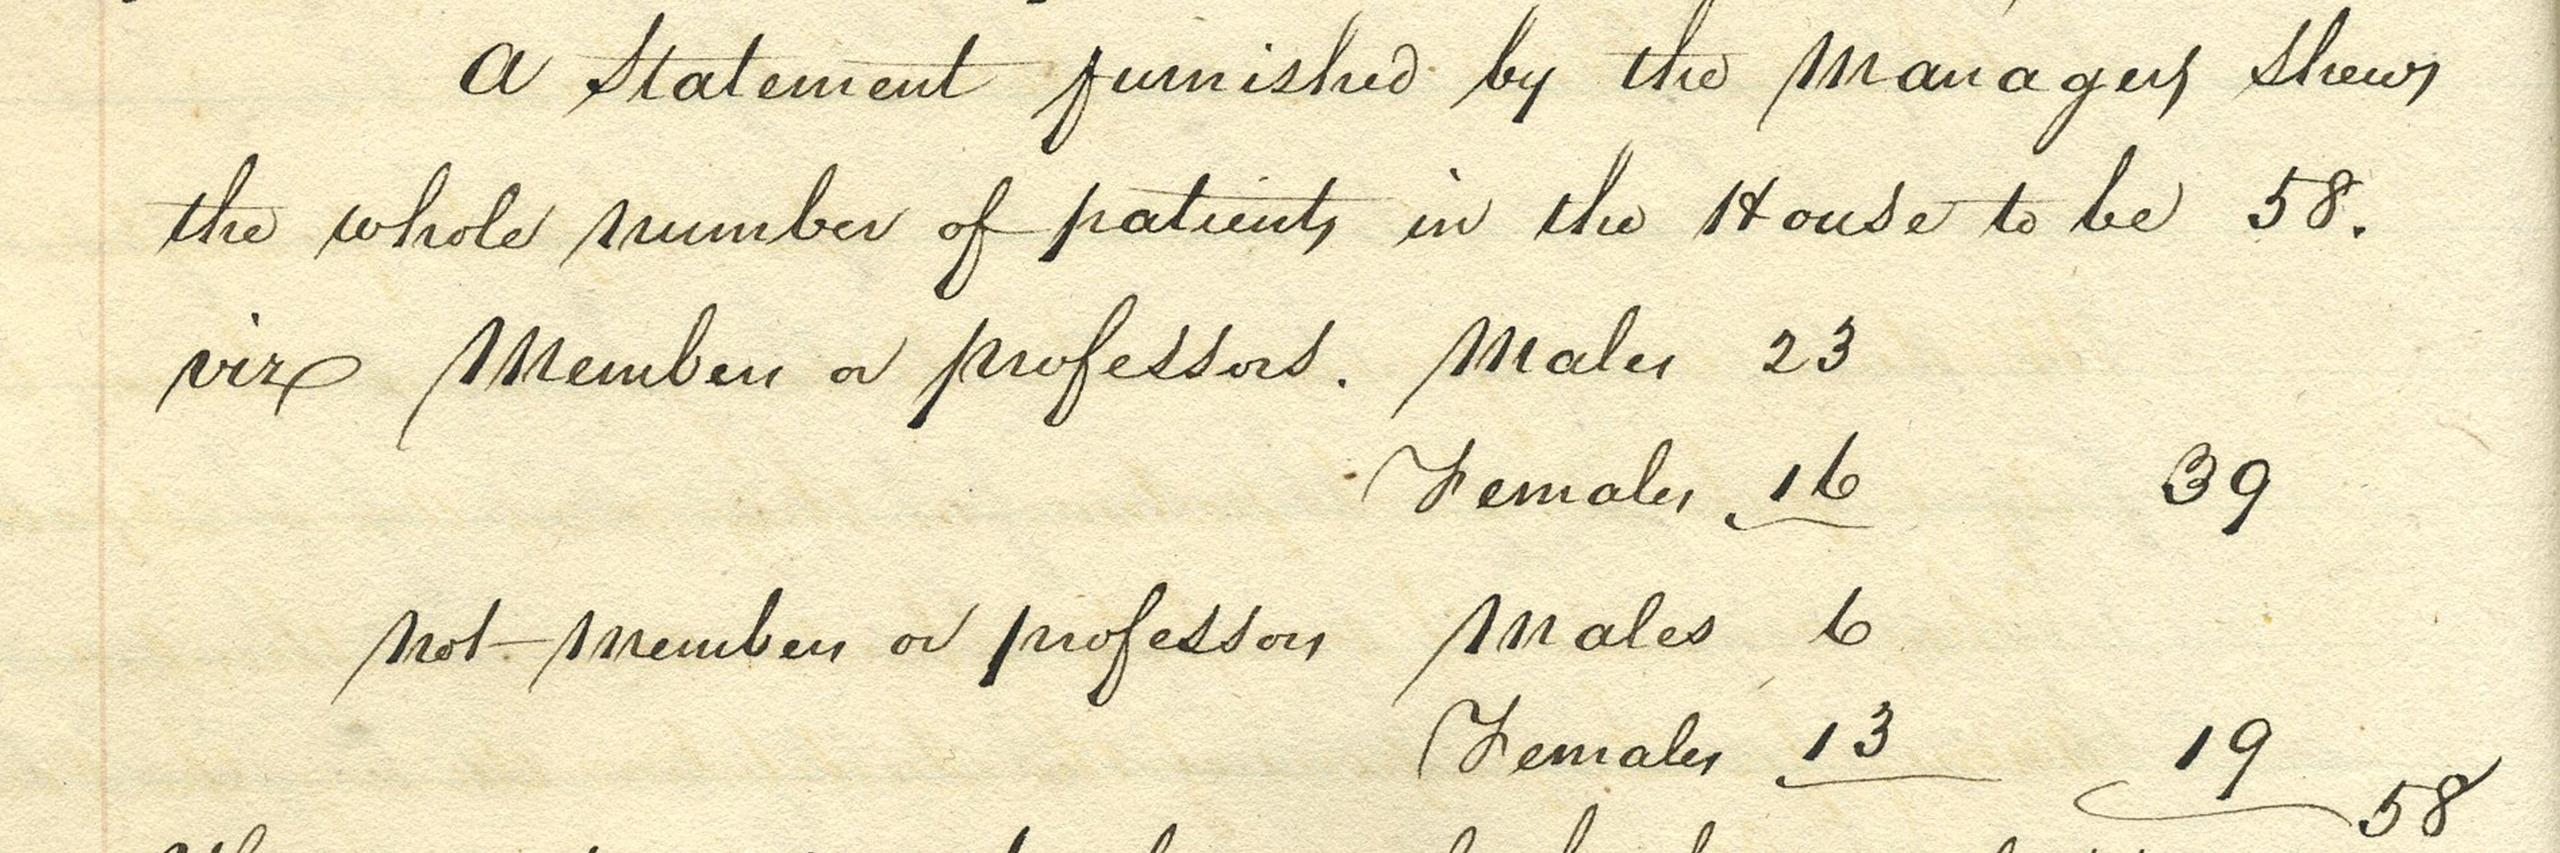 A Statement furnished by the Managers shews
the whole number of patients in the House to be 58.
viz Members or professors. Males 23
Females 16 39
not Members or professors Males 6
Females 13 19
58